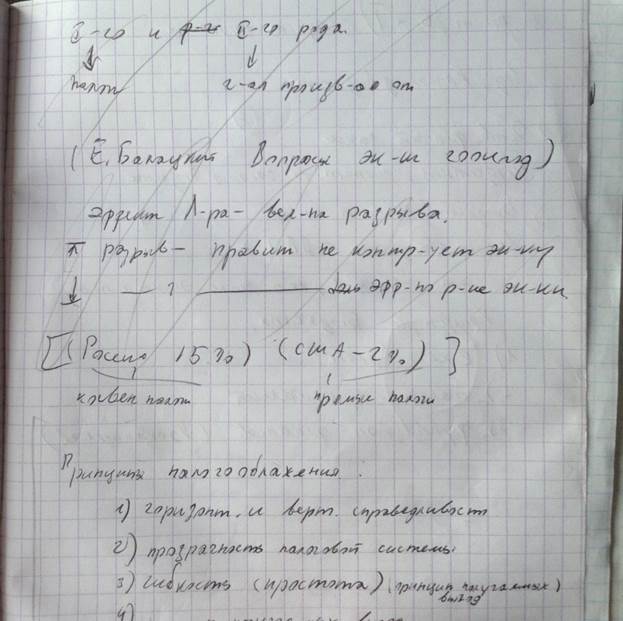 I-го и II-го рода.
↓ ↓
налог г-ал произв-ое от
(Е. Балацкий Вопросы эк-ки год)
эффект Л-ра – вел-на разрыва.
разрыв – правит не контр-ует эк-ку
↓ — эфф-но р-ие эк-ки
[(Россия 15%) (США – 2%)]
косвен налоги прямые налоги
Принципы налогообложения:
1) горизонт. и верт. справедливость
2) прозрачность налоговой системы
3) гибкость (простота) (принцип получаемых
выгод)
4)